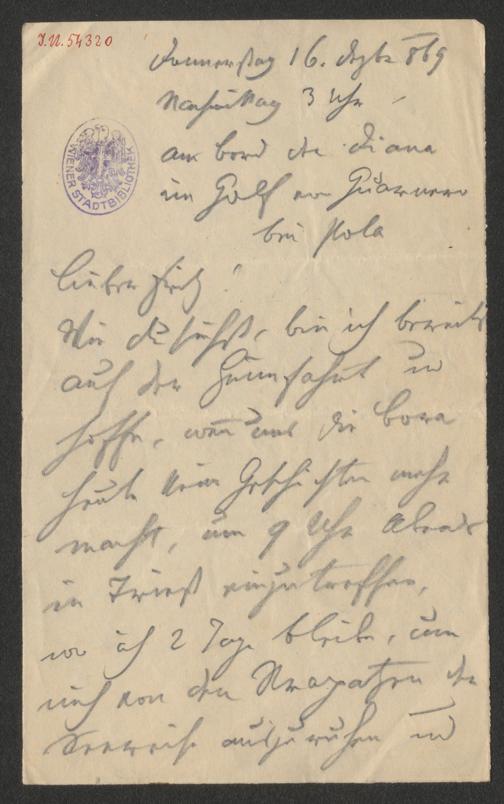 J.N. 54320
WIENER STADTBIBLIOTHEK
Donnerstag 16. Dezbr 869
Nachmittag 3 Uhr
am bord der Diana
im Golf von Quarnero
bei Pola
Lieber
Wie du siehst, bin ich bereits
auf der Heimfahrt und
hoffe, wenn uns die bora
heute keine Geschichten mehr
macht, um 9 Uhr Abends
in Triest einzutreffen,
wo ich 2 Tage bleibe, um
mich von den Strapatzen der
Seereise auszuruhen und